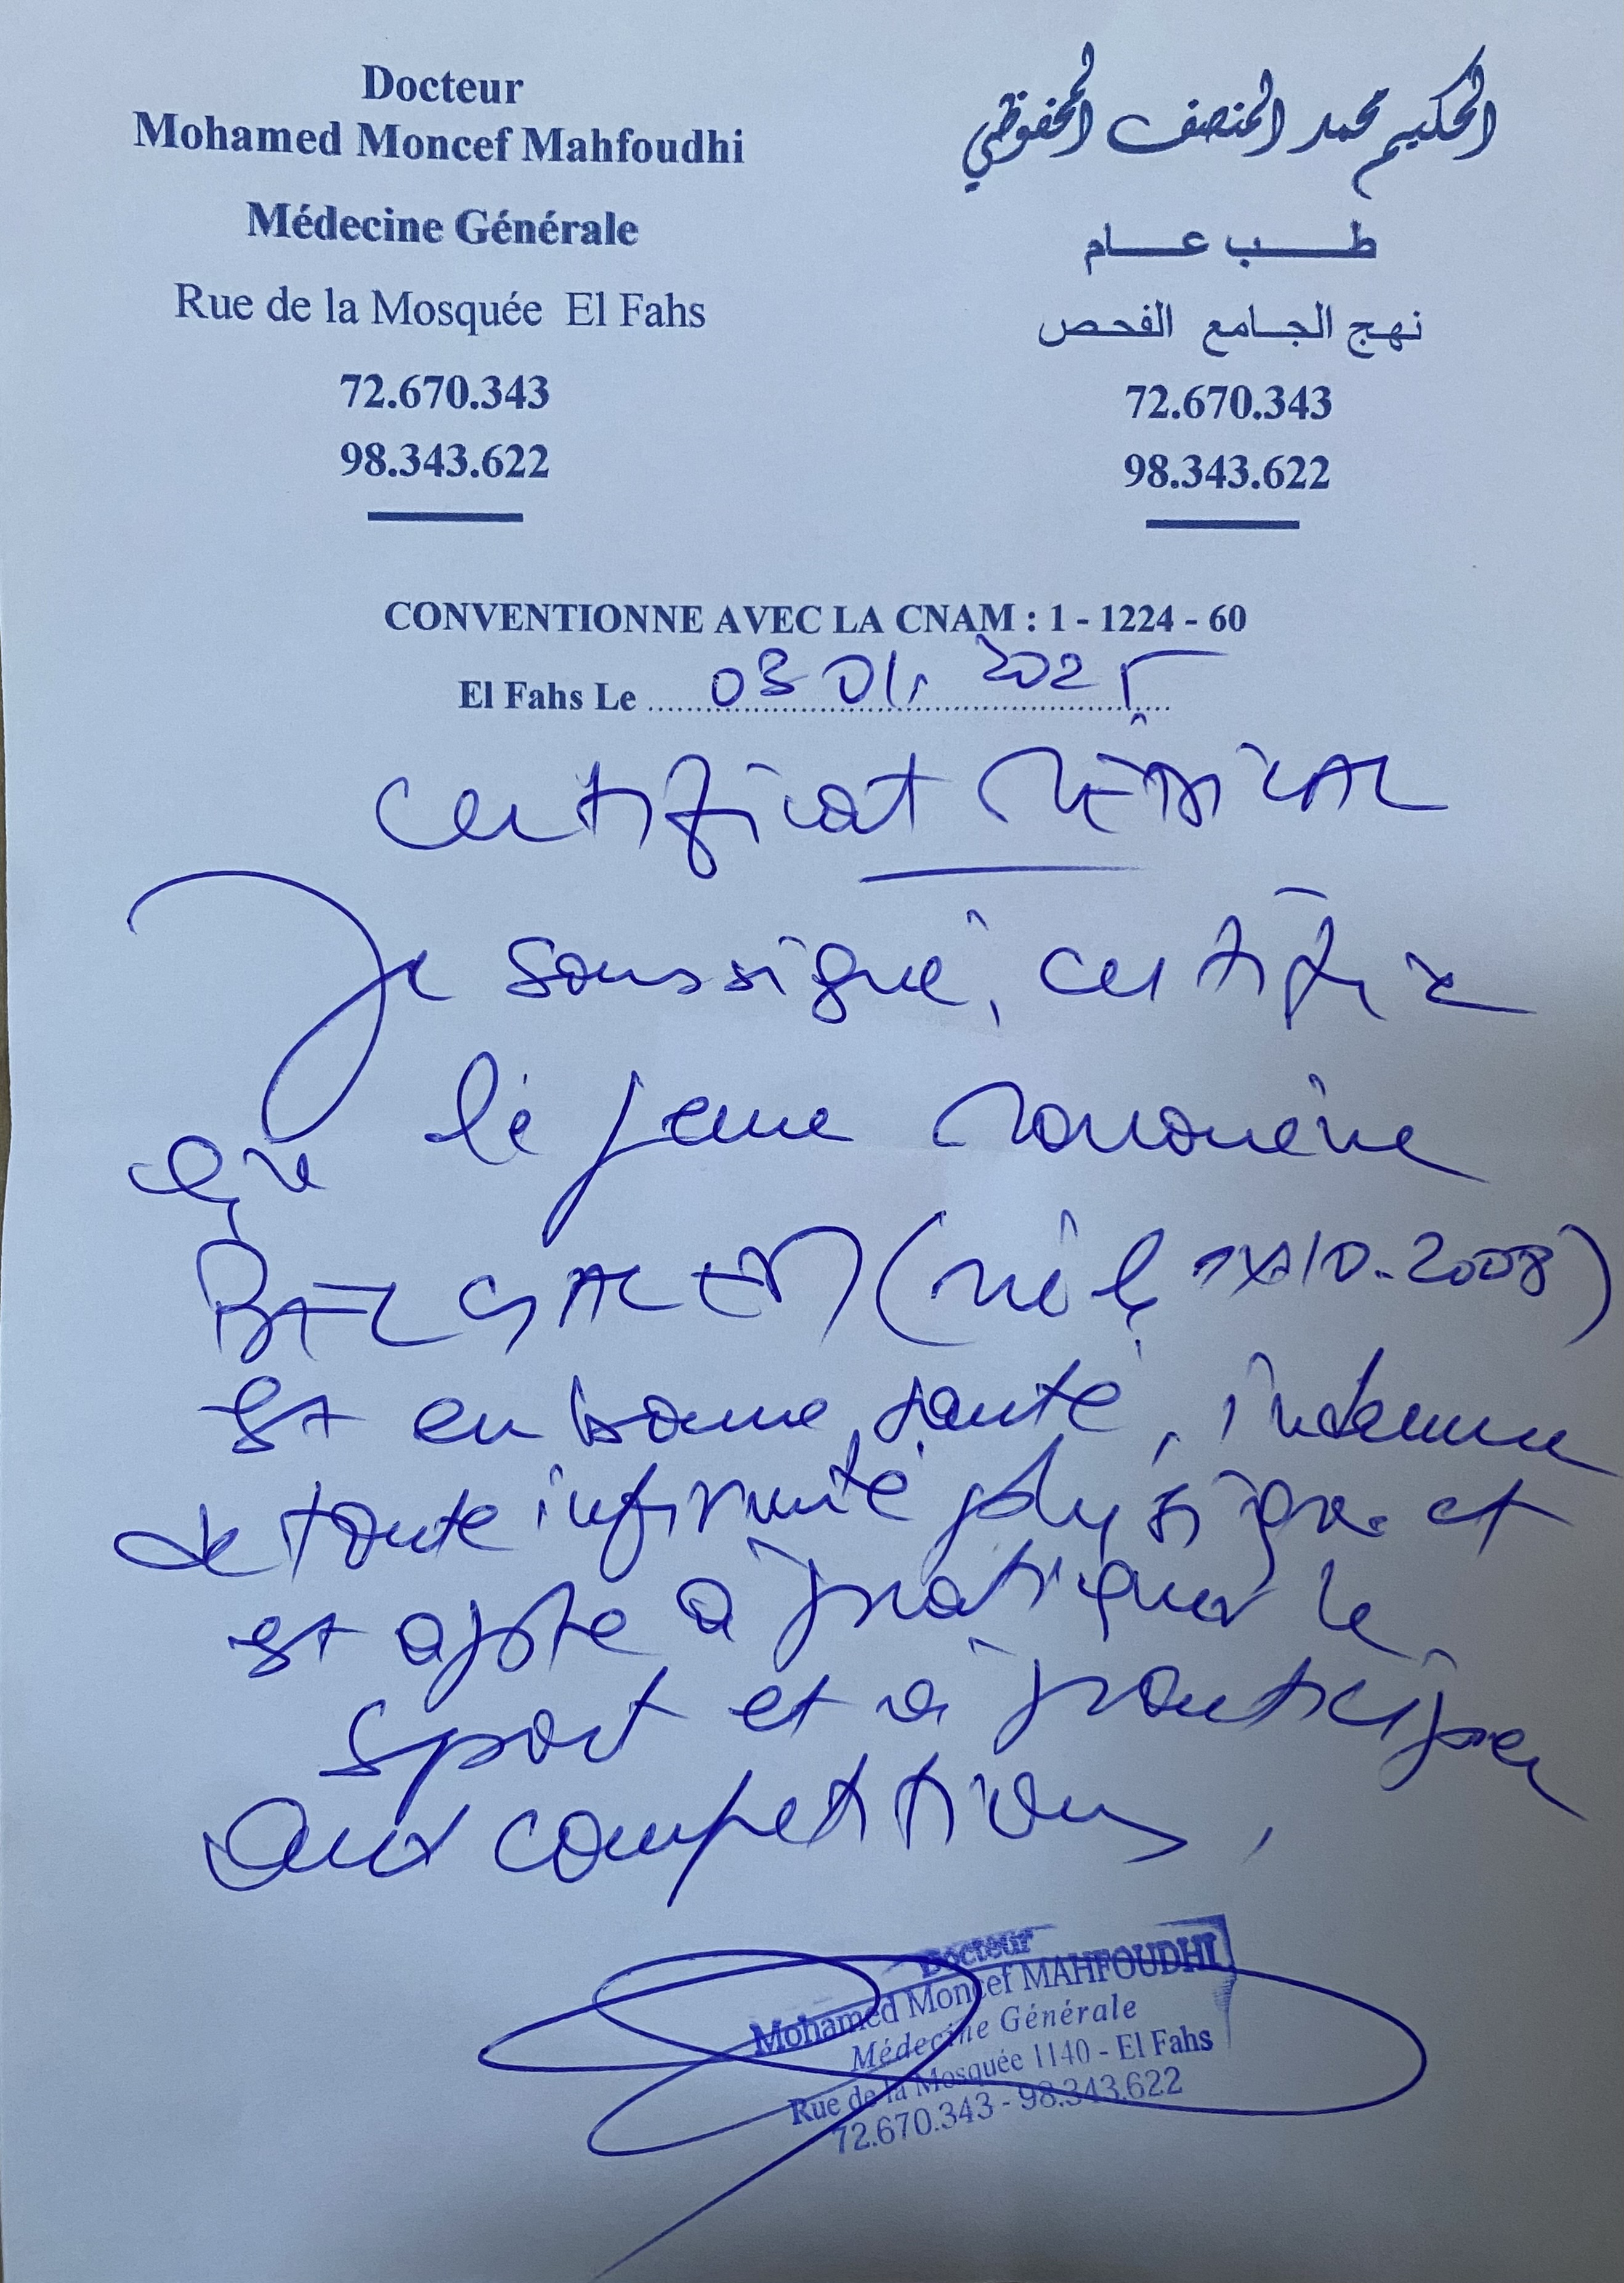 Docteur
Mohamed Moncef Mahfoudhi
Médecine Générale
Rue de la Mosquée El Fahs
72.670.343
98.343.622
الحكيم محمد المنصف المحفوظي
طب عام
نهج الجامع الفحص
72.670.343
98.343.622
CONVENTIONNE AVEC LA CNAM : 1 - 1224 - 60
El Fahs Le 03 01. 2025
Certificat MÉDICAL
Je soussigné, certifie
que le jeune
BELGACEM (né le 10.2008)
est en bonne santé, indemne
de toute infirmité physique et
est apte à pratiquer le
sport et à participer
aux competitions,
Docteur
Mohamed Moncef MAHFOUDHI
Médecine Générale
Rue de la Mosquée 1140 - El Fahs
72.670.343 - 98.343.622